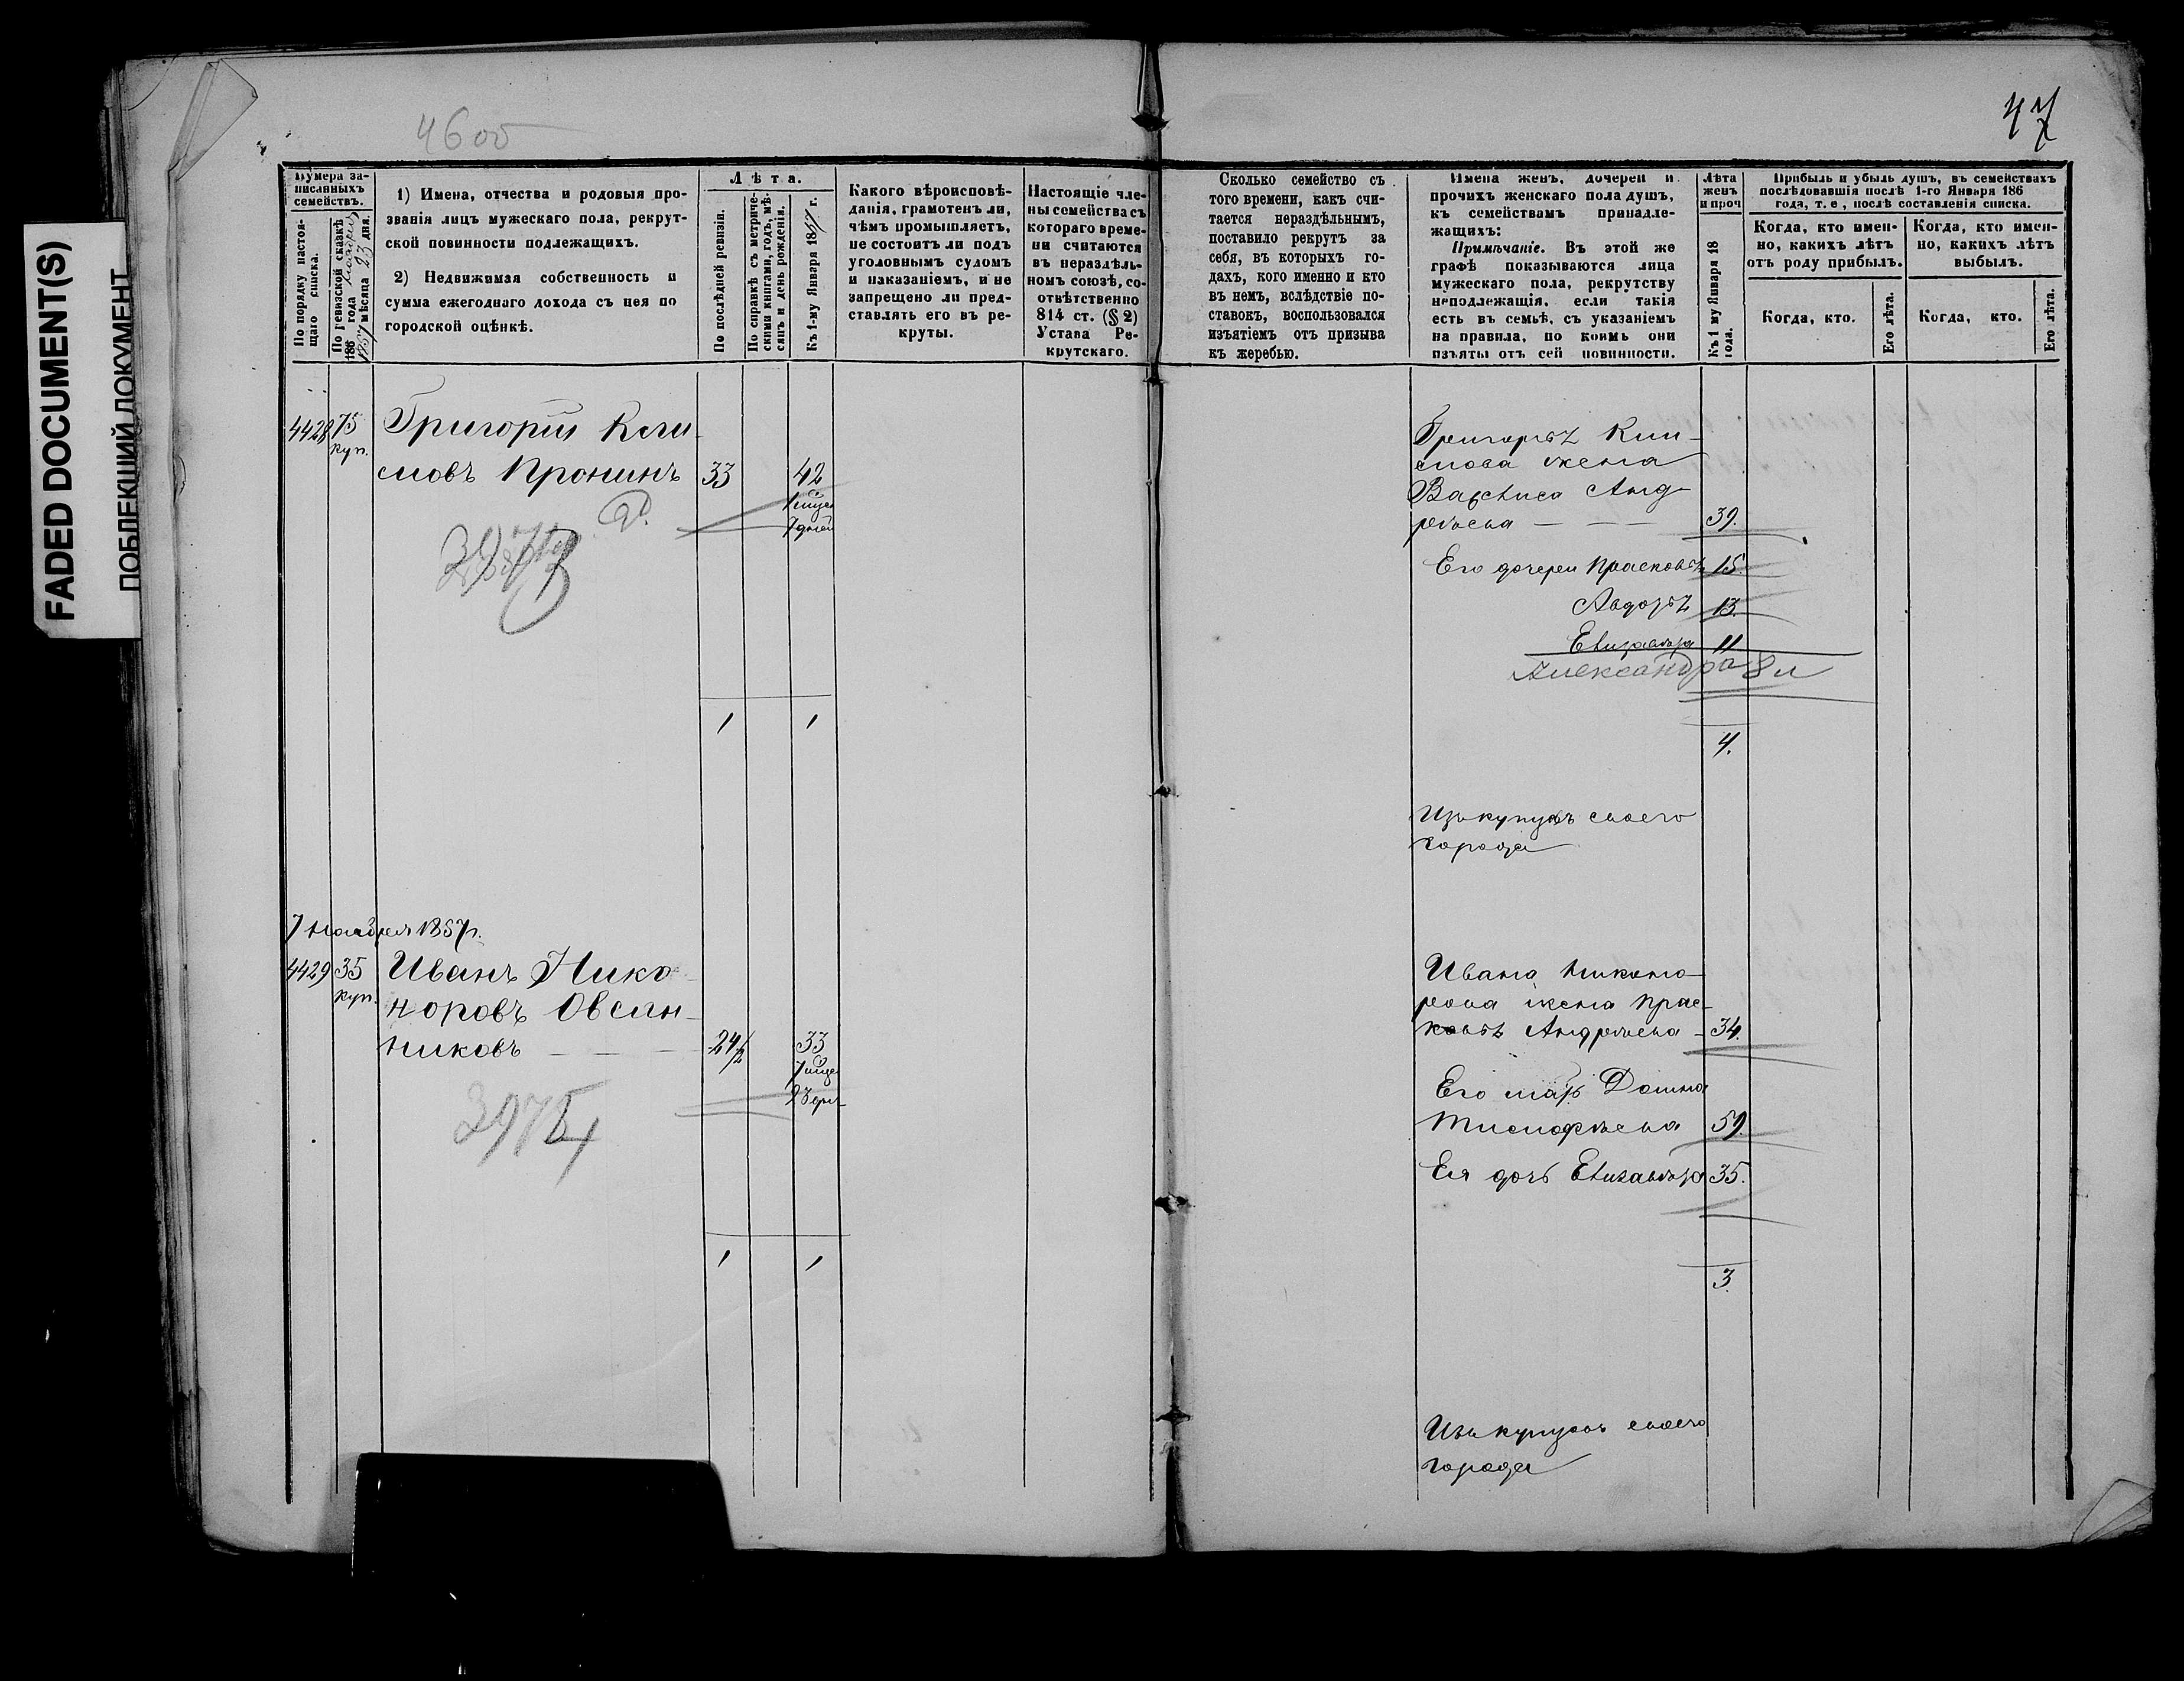 FADED DOCUMENT(S)
ПОБЛЕКШИЙ ДОКУМЕНТ
4600
47
Нумера за-
писанныхъ
семействъ.
По порядку настоя-
щаго списка.
По ревизской сказкѣ
186 года
1857 мѣсяца 23 дня.
1) Имена, отчества и родовыя про-
званія лицъ мужескаго пола, рекрут-
ской повинности подлежащихъ.
2) Недвижимая собственность и
сумма ежегоднаго дохода съ нея по
городской оцѣнкѣ.
Лѣта.
По послѣдней ревизіи.
По справкѣ съ метриче-
скими книгами, годъ, мѣ-
сяцъ и день рожденія.
Къ 1-му Января 1857 г.
Какого вѣроисповѣ-
данія, грамотенъ ли,
чѣмъ промышляетъ,
не состоитъ ли подъ
уголовнымъ судомъ
и наказаніемъ, и не
запрещено ли пред-
ставлять его въ ре-
круты.
Настоящіе чле-
ны семейства съ
котораго време-
ни считаются
въ нераздѣль-
номъ союзѣ, со-
отвѣтственно
814 ст. (§ 2)
Устава Ре-
крутскаго.
Сколько семейство съ
того времени, какъ счи-
тается нераздѣльнымъ,
поставило рекрутъ за
себя, въ которыхъ го-
дахъ, кого именно и кто
въ немъ, вслѣдствіе по-
ставокъ, воспользовался
изъятіемъ отъ призыва
къ жеребью.
Имена женъ, дочерей и
прочихъ женскаго пола душъ,
къ семействамъ принадле-
жащихъ:
Примѣчаніе. Въ этой же
графѣ показываются лица
мужескаго пола, рекрутству
неподлежащія, если такія
есть въ семьѣ, съ указаніемъ
на правила, по коимъ они
изъяты отъ сей повинности.
Лѣта
женъ
и проч
Къ 1 му Января 18
года.
Прибыль и убыль душъ, въ семействахъ
послѣдовавшія послѣ 1-го Января 186
года, т. е., послѣ составленія списка.
Когда, кто имен-
но, какихъ лѣтъ
отъ роду прибылъ.
Когда, кто имен-
но, какихъ лѣтъ
выбылъ.
Когда, кто.
Его лѣта.
Когда, кто.
Его лѣта.
4428 75 Григорій Кли-
куп.
мовъ Пронинъ 33 42
7 дней
1 1
Григорья Кли-
мова жена
Андр-
ѣева — — — 39.
Его дочери Прасковья 15
Авдотья 13.
Елизавета 11
Александра 8 л
4.
Изъ купцовъ своего
города
7 Ноября 1857 г.
4429 35 Иванъ Нико-
куп. норовъ Овсян-
никовъ — — — 24½ 33
7 мѣся
23 дня
3975
1 1
Ивана Никоно-
рова жена Прас-
ковья Андрѣева - 34.
Его мать Домна
Тимофѣева 59.
Ея дочь Елизавета 35.
3.
Изъ купцовъ своего
города